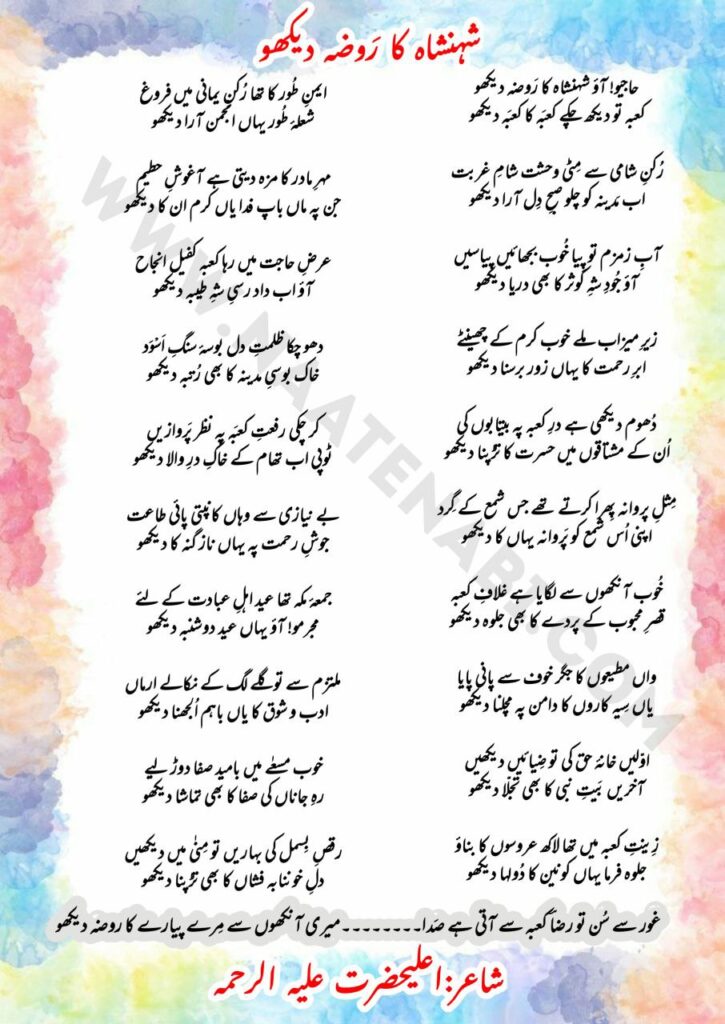 شہنشاہ کا رَوضہ دیکھو
حاجیو! آؤ شہنشاہ کا رَوضہ دیکھو
کعبہ تو دیکھ چکے کعبَہ کا کعبَہ دیکھو
رُکنِ شامی سے مِٹی وحشت شامِ غربت
اب مدینہ کو چلو صبحِ دِل آرا دیکھو
آبِ زمزم تو پیا خُوب بجھائیں پیاسیں
آؤ جُودِ شہِ کوثر کا بھی دریا دیکھو
زیرِ میزاب ملے خوب کرم کے چھینٹے
ابرِ رحمت کا یہاں زور برسنا دیکھو
دُھوم دیکھی ہے درِ کعبہ پہ بیتابوں کی
اُن کے مشتاقوں میں حسرت کا تڑپنا دیکھو
مِثلِ پروانہ پِھرا کرتے تھے جس شمع کے گِرد
اپنی اُس شمع کو پَروانہ یہاں کا دیکھو
خُوب آنکھوں سے لگایا ہے غلافِ کعبہ
قصرِ محبوب کے پردے کا بھی جلوہ دیکھو
واں مطیعوں کا جگر خوف سے پانی پایا
یاں سِیہ کاروں کا دامن پہ مچلنا دیکھو
اوّلیں خانۂ حق کی تو ضِیائیں دیکھیں
آخریں بَیتِ نبی کا بھی تجلّا دیکھو
زِینتِ کعبہ میں تھا لاکھ عروسوں کا بناؤ
جلوہ فرما یہاں کونین کا دُولہا دیکھو
ایمنِ طُور کا تھا رُکنِ یمانی میں فروغ
شعلۂ طُور یہاں انجمن آرا دیکھو
مہرِ مادر کا مزہ دیتی ہے آغوشِ حطیم
جن پہ ماں باپ فدا یاں کرم ان کا دیکھو
عرضِ حاجت میں رہا کعبہ کفیل انجاح
آؤ اب داد رسیِ شہِ طیبہ دیکھو
دھو چکا ظلمتِ دل بوسۂ سنگِ اَسْوَد
خاک بوسیِ مدینہ کا بھی رُتبہ دیکھو
کر چکی رفعتِ کعبَہ پہ نظر پَروازیں
ٹوپی اب تھام کے خاکِ درِ والا دیکھو
بے نیازی سے وہاں کانپتی پائی طاعت
جوشِ رحمت پہ یہاں ناز گنہ کا دیکھو
جمعۂ مکہ تھا عید اہلِ عبادت کے لئے
مجرمو! آؤ یہاں عید دوشنبہ دیکھو
ملتزم سے تو گلے لگ کے نکالے ارماں
ادب و شوق کا یاں باہم اُلجھنا دیکھو
خوب مسعٰے میں بامید صفا دوڑ لیے
رہِ جاناں کی صفا کا بھی تماشا دیکھو
رقصِ بِسمل کی بہاریں تو مِنیٰ میں دیکھیں
دلِ خونابہ فشاں کا بھی تڑپنا دیکھو
غور سے سُن تو رضاؔ کعبہ سے آتی ہے صَدا۔۔۔۔۔۔۔۔میری آنکھوں سے مِرے پیارے کا روضہ دیکھو
شاعر:اعلیٰحضرت علیہ الرحمہ
WWW.NAATENABI.COM